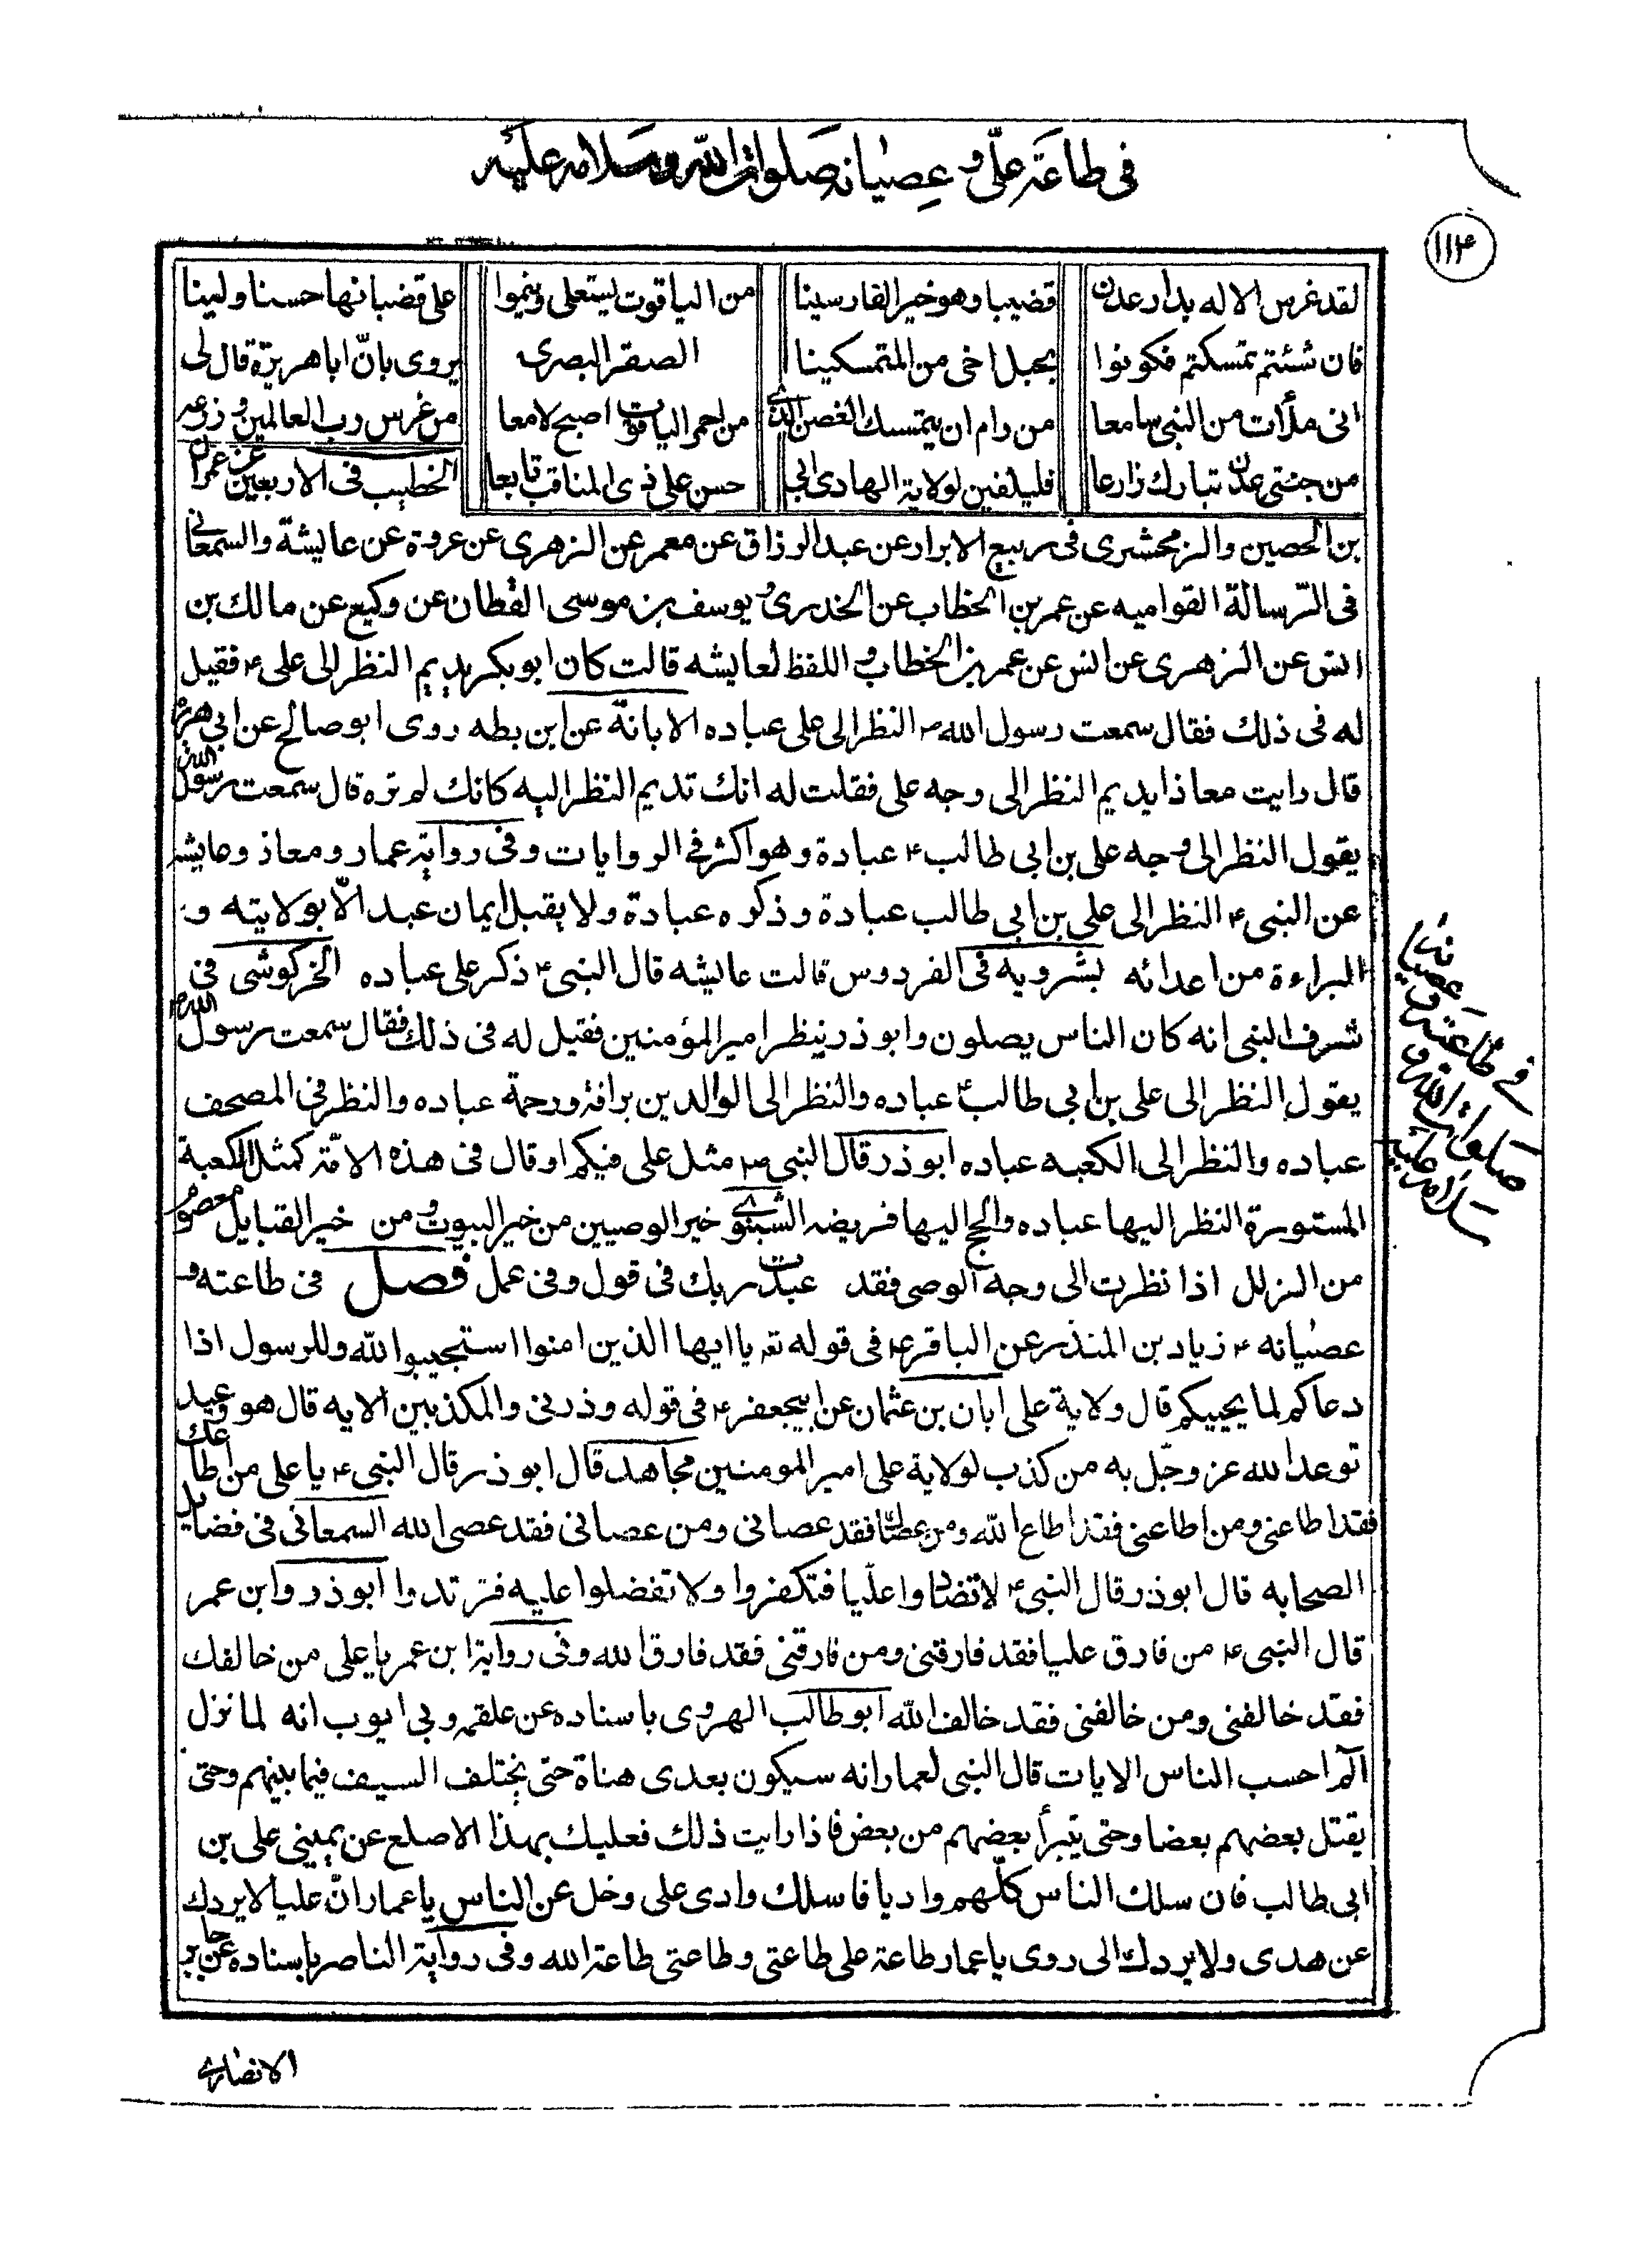 فى طاعة علىّ و عصيانه صلوات الله وسلامه عليه
١١٤
لقد غرس الاله بدار عدن قضيبا وهو خير الغارسينا من الياقوت يستعلى وينموا على قضبانها حسنا ولينا
فان شئتم تمسكتم فكونوا بحبل اخى من المتمسكينا الصقر البصرى يروى بانّ ابا هريرة قال لى
انى ملأت من النبى سامعا من رام ان يتمسك الغصن الذى من احمر الياقوت اصبح لامعا من غرس رب العالمين وزرعه
من جنتى عدن تبارك زارعا فليلفين لولاية الهادى ابى حسن على ذى المناقب تابعا الخطيب فى الاربعين عن عمران
بن الحصين والزمخشرى فى ربيع الابرار عن عبد الرزاق عن معمر عن الزهرى عن عروة عن عايشة والسمعانى
فى الرسالة القواميه عن عمر بن الخطاب عن الخدرى و يوسف بن موسى القطان عن وكيع عن مالك بن
انس عن الزهرى عن انس عن عمر بن الخطاب و اللفظ لعايشه قالت كان ابو بكر يديم النظر الى على ع فقيل
له فى ذلك فقال سمعت رسول الله ص النظر الى على عباده الابانة عن ابن بطه روى ابو صالح عن ابى هريرة
قال رايت معاذا يديم النظر الى وجه على فقلت له انك تديم النظر اليه كانك لم تره قال سمعت رسول الله
يقول النظر الى وجه على بن ابى طالب ع عبادة وهو اكثر فى الروايات وفى رواية عمار ومعاذ وعايشه
عن النبى ع النظر الى على بن ابى طالب عبادة وذكره عبادة ولا يقبل ايمان عبد الّا بولايته و
البراءة من اعدائه بشرويه فى الفردوس قالت عايشه قال النبى ع ذكر على عباده الخركوشى فى
شرف النبى انه كان الناس يصلون وابو ذر ينظر امير المؤمنين فقيل له فى ذلك فقال سمعت رسول الله ص
يقول النظر الى على بن ابى طالب ع عباده والنظر الى الوالدين برافة ورحمة عباده والنظر فى المصحف
عباده والنظر الى الكعبه عباده ابو ذر قال النبى ص مثل على فيكم او قال فى هذه الامّة كمثل الكعبة
المستورة النظر اليها عباده والحج اليها فريضه خير الوصيين من خير البيوت و من خير القبايل معصوم
من الزلل اذا نظرت الى وجه الوصى فقد عبدت ربك فى قول وفى عمل فصل فى طاعته و
عصيانه ع زياد بن المنذر عن الباقر ع فى قوله تع يا ايها الذين امنوا استجيبوا لله وللرسول اذا
دعاكم لما يحييكم قال ولاية على ابان بن عثمان عن ابيجعفر ع فى قوله وذرنى والمكذبين الايه قال هو وعيد
توعد الله عز وجّل به من كذب لولاية على امير المومنين مجاهد قال ابو ذر قال النبى ع يا على من اطاعك
فقد اطاعنى ومن اطاعنى فقد اطاع الله ومن عصاك فقد عصانى ومن عصانى فقد عصى الله السمعانى فى فضايل
الصحابه قال ابو ذر قال النبى ع لا تضادوا عليّا فتكفروا ولا تفضلوا عليه فترتدوا ابو ذر وابن عمر
قال النبى ع من فارق عليا فقد فارقنى ومن فارقنى فقد فارق الله وفى رواية ابن عمر يا على من خالفك
فقد خالفنى ومن خالفنى فقد خالف الله ابو طالب الهروى باسناده عن علقمه وبى ايوب انه لما نزل
آلم احسب الناس الايات قال النبى لعمار انه سيكون بعدى هناة حتى يختلف السيف فيما بينهم وحتى
يقتل بعضهم بعضا وحتى يتبرأ بعضهم من بعض فاذا رايت ذلك فعليك بهذا الاصلع عن يمينى على بن
ابى طالب فان سلك الناس كلّهم واديا فاسلك وادى على وخل عن الناس يا عمار انّ عليا لا يردك
عن هدى ولا يردك الى روى يا عمار طاعة على طاعتى وطاعتى طاعة الله وفى رواية الناصر باسناده عن جابر
الانصارى
فى طاعته و عصيانه
صلوات الله و
سلامه عليه